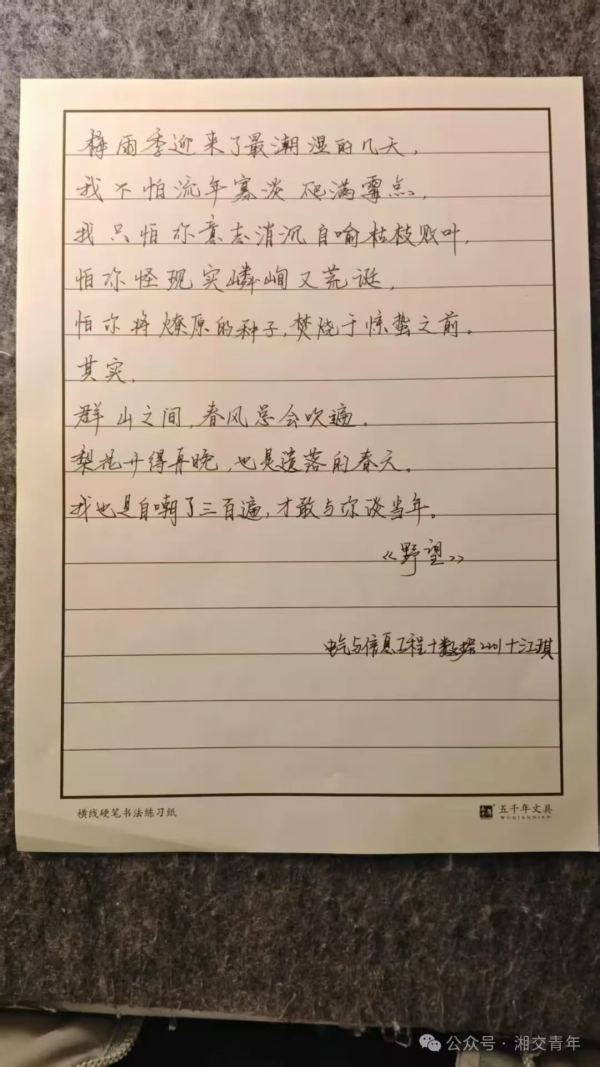 静雨季迎来了最潮湿的几天，
我不怕流年寡淡爬满霉点，
我只怕你意志消沉自喻枯枝败叶，
怕你怪现实嶙峋又荒诞，
怕你将燎原的种子，焚烧于惊蛰之前。
其实，
群山之间，春风总会吹遍。
梨花开得再晚，也是遗落的春天。
我也是自嘲了三百遍，才敢与你谈当年。
《野望》
电气与信息工程+数据2201+江琪
横线硬笔书法练习纸
五千年文具
WUQIANNIAN
公众号·湘交青年